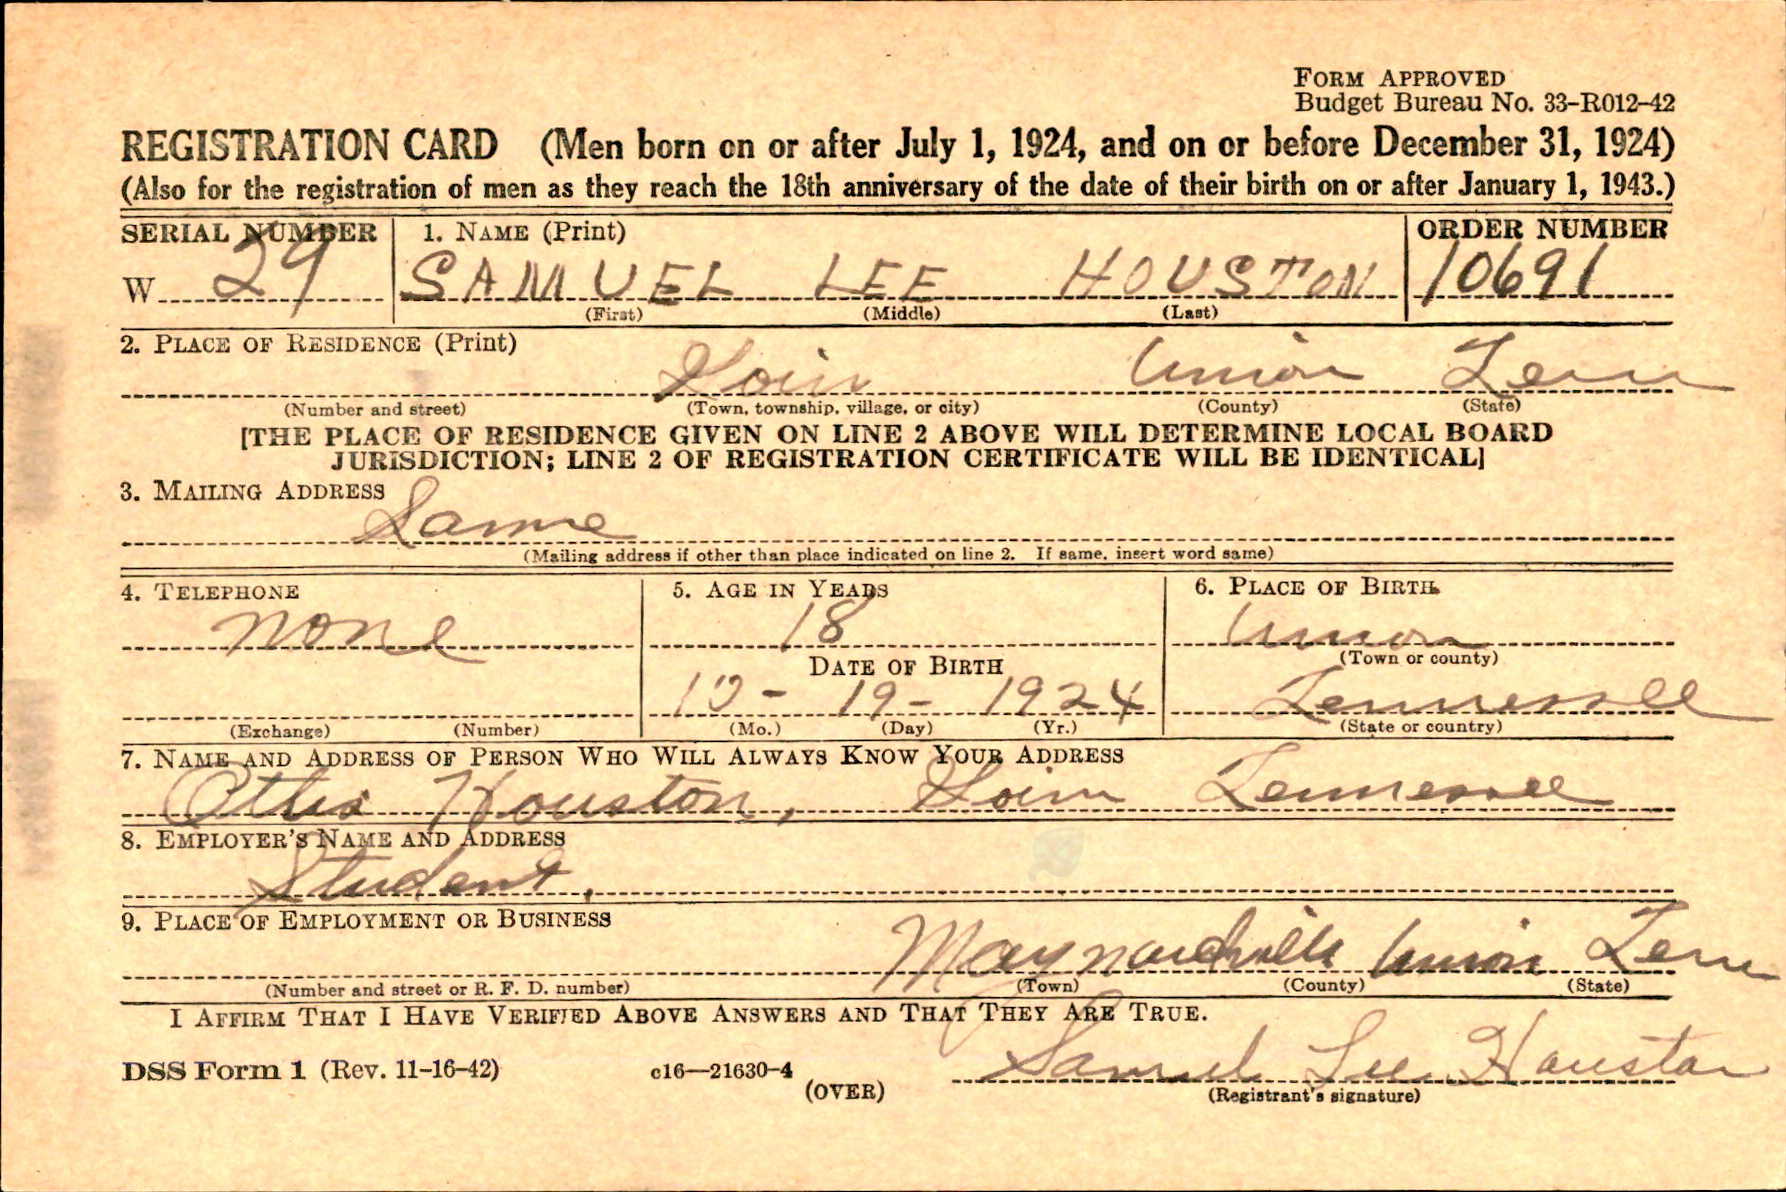 FORM APPROVED
Budget Bureau No. 33-R012-42
REGISTRATION CARD (Men born on or after July 1, 1924, and on or before December 31, 1924)
(Also for the registration of men as they reach the 18th anniversary of the date of their birth on or after January 1, 1943.)
SERIAL NUMBER 1. NAME (Print) ORDER NUMBER
W 29 SAMUEL LEE HOUSTON 10691
(First) (Middle) (Last)
2. PLACE OF RESIDENCE (Print)
Goin Union Tenn
(Number and street) (Town, township, village, or city) (County) (State)
[THE PLACE OF RESIDENCE GIVEN ON LINE 2 ABOVE WILL DETERMINE LOCAL BOARD
JURISDICTION; LINE 2 OF REGISTRATION CERTIFICATE WILL BE IDENTICAL]
3. MAILING ADDRESS
Same
(Mailing address if other than place indicated on line 2. If same, insert word same)
4. TELEPHONE 5. AGE IN YEARS 6. PLACE OF BIRTH
none 18 Union
DATE OF BIRTH (Town or county)
10 - 19 - 1924 Tennessee
(Exchange) (Number) (Mo.) (Day) (Yr.) (State or country)
7. NAME AND ADDRESS OF PERSON WHO WILL ALWAYS KNOW YOUR ADDRESS
Otha Houston, Goin Tennessee
8. EMPLOYER'S NAME AND ADDRESS
Student.
9. PLACE OF EMPLOYMENT OR BUSINESS
Maynardville Union Tenn
(Number and street or R. F. D. number) (Town) (County) (State)
I AFFIRM THAT I HAVE VERIFIED ABOVE ANSWERS AND THAT THEY ARE TRUE.
DSS Form 1 (Rev. 11-16-42) c16—21630-4 Samuel Lee Houston
(OVER) (Registrant's signature)